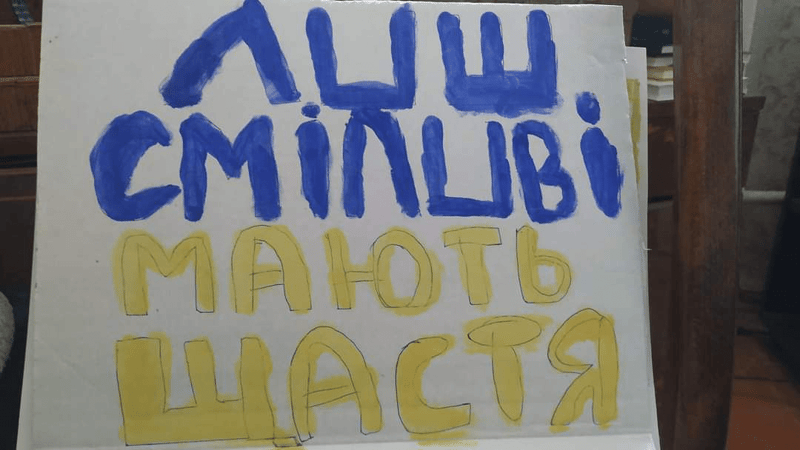 ЛИШ
СМІЛИВІ
МАЮТЬ
ЩАСТЯ